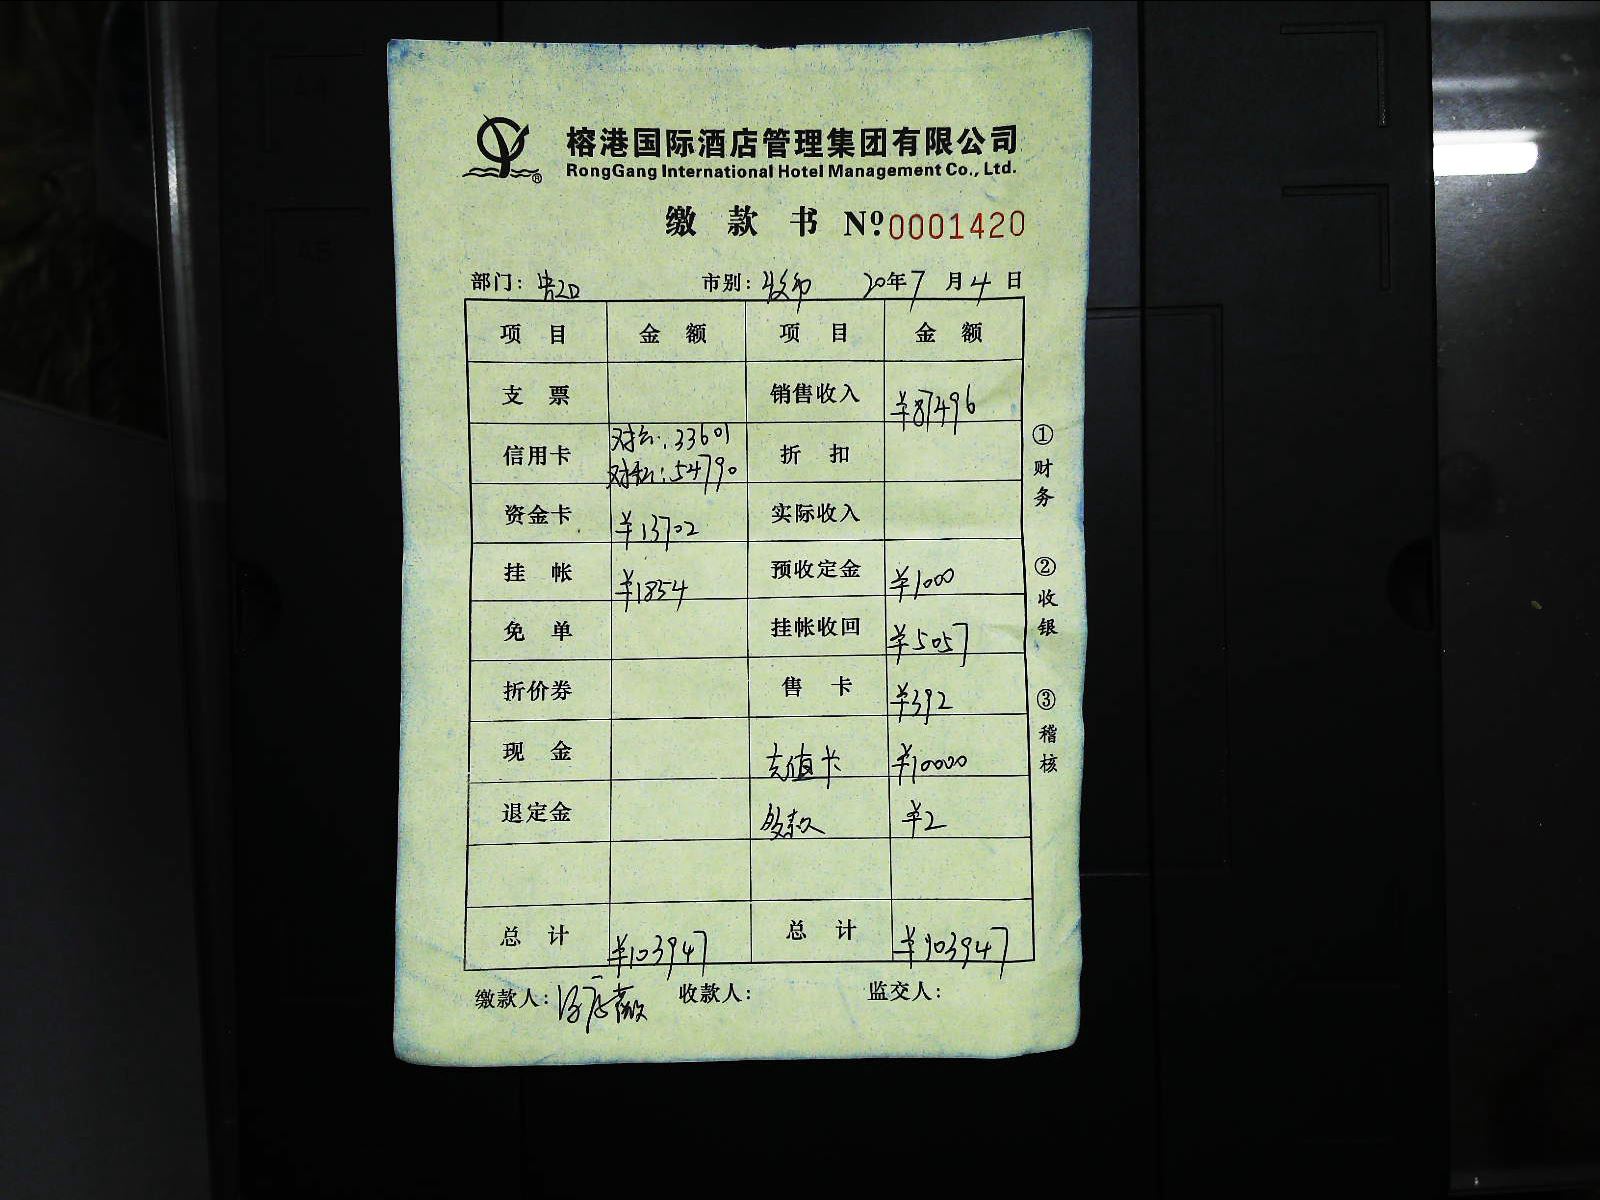 榕港国际酒店管理集团有限公司
RongGang International Hotel Management Co., Ltd.
缴款书 Nº 0001420
部门： 市别：收市 20年7月4日
项目 金额 项目 金额
支票 销售收入 ¥87496
信用卡 对公：33601 对私：54790 折扣
资金卡 ¥13702 实际收入
挂帐 ¥1854 预收定金 ¥1000
免单 挂帐收回 ¥5057
折价券 售卡 ¥392
现金 充值卡 ¥10000
退定金 多款 ¥2
总计 ¥103947 总计 ¥103947
缴款人： 收款人： 监交人：
①财务 ②收银 ③稽核